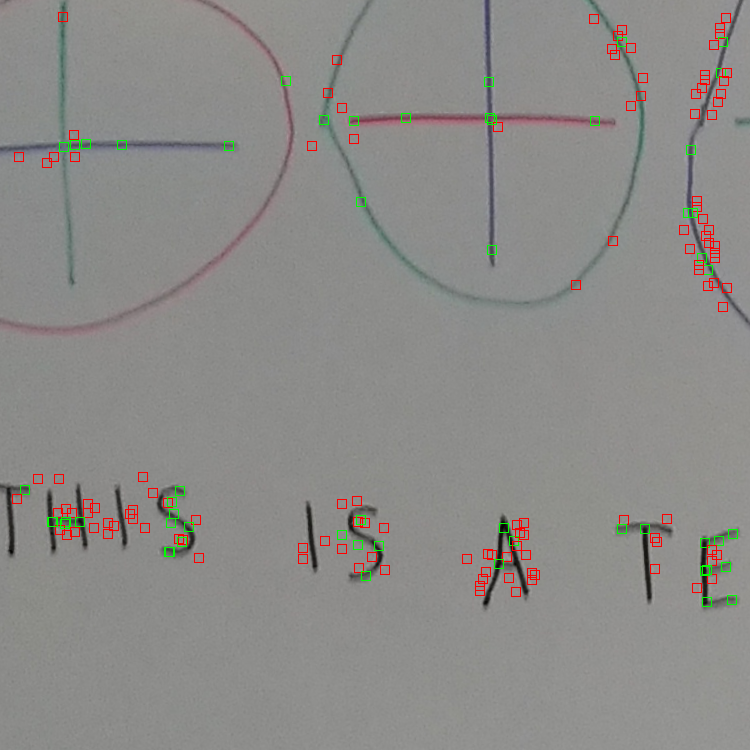 THIS IS A TE